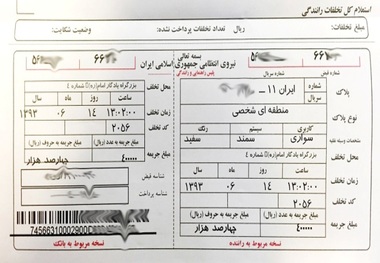 استعلام کل تخلفات رانندگی
مبلغ تخلفات: ریال تعداد تخلفات پرداخت نشده: وضعیت شکایت:
بسمه تعالی
نیروی انتظامی جمهوری اسلامی ایران
پلیس راهنمایی و رانندگی
شماره قبض شماره سریال
پلاک
سریال
ایران ۱۱ ـ
شماره
نوع پلاک
منطقه ای شخصی
مشخصات وسیله نقلیه
کاربری سیستم رنگ
سواری سمند سفید
محل تخلف
بزرگراه یادگار امام(ره)() شماره ۴
زمان تخلف
ساعت روز ماه سال
۱۳:۰۲:۰۰ ۱۴ ۰۶ ۱۳۹۳
کد تخلف
۲۰۵۶
مبلغ جریمه
مبلغ جریمه به عدد (ریال) مبلغ جریمه به حروف (ریال)
۴۰۰۰۰۰ چهارصد هزار
نسخه مربوط به راننده
محل تخلف
بزرگراه یادگار امام(ره)() شماره ۴
زمان تخلف
ساعت روز ماه سال
۱۳:۰۲:۰۰ ۱۴ ۰۶ ۱۳۹۳
کد تخلف
۲۰۵۶
مبلغ جریمه
مبلغ جریمه به عدد (ریال) مبلغ جریمه به حروف (ریال)
۴۰۰۰۰۰ چهارصد هزار
شناسه قبض
شناسه پرداخت
74566310002900
نسخه مربوط به بانک